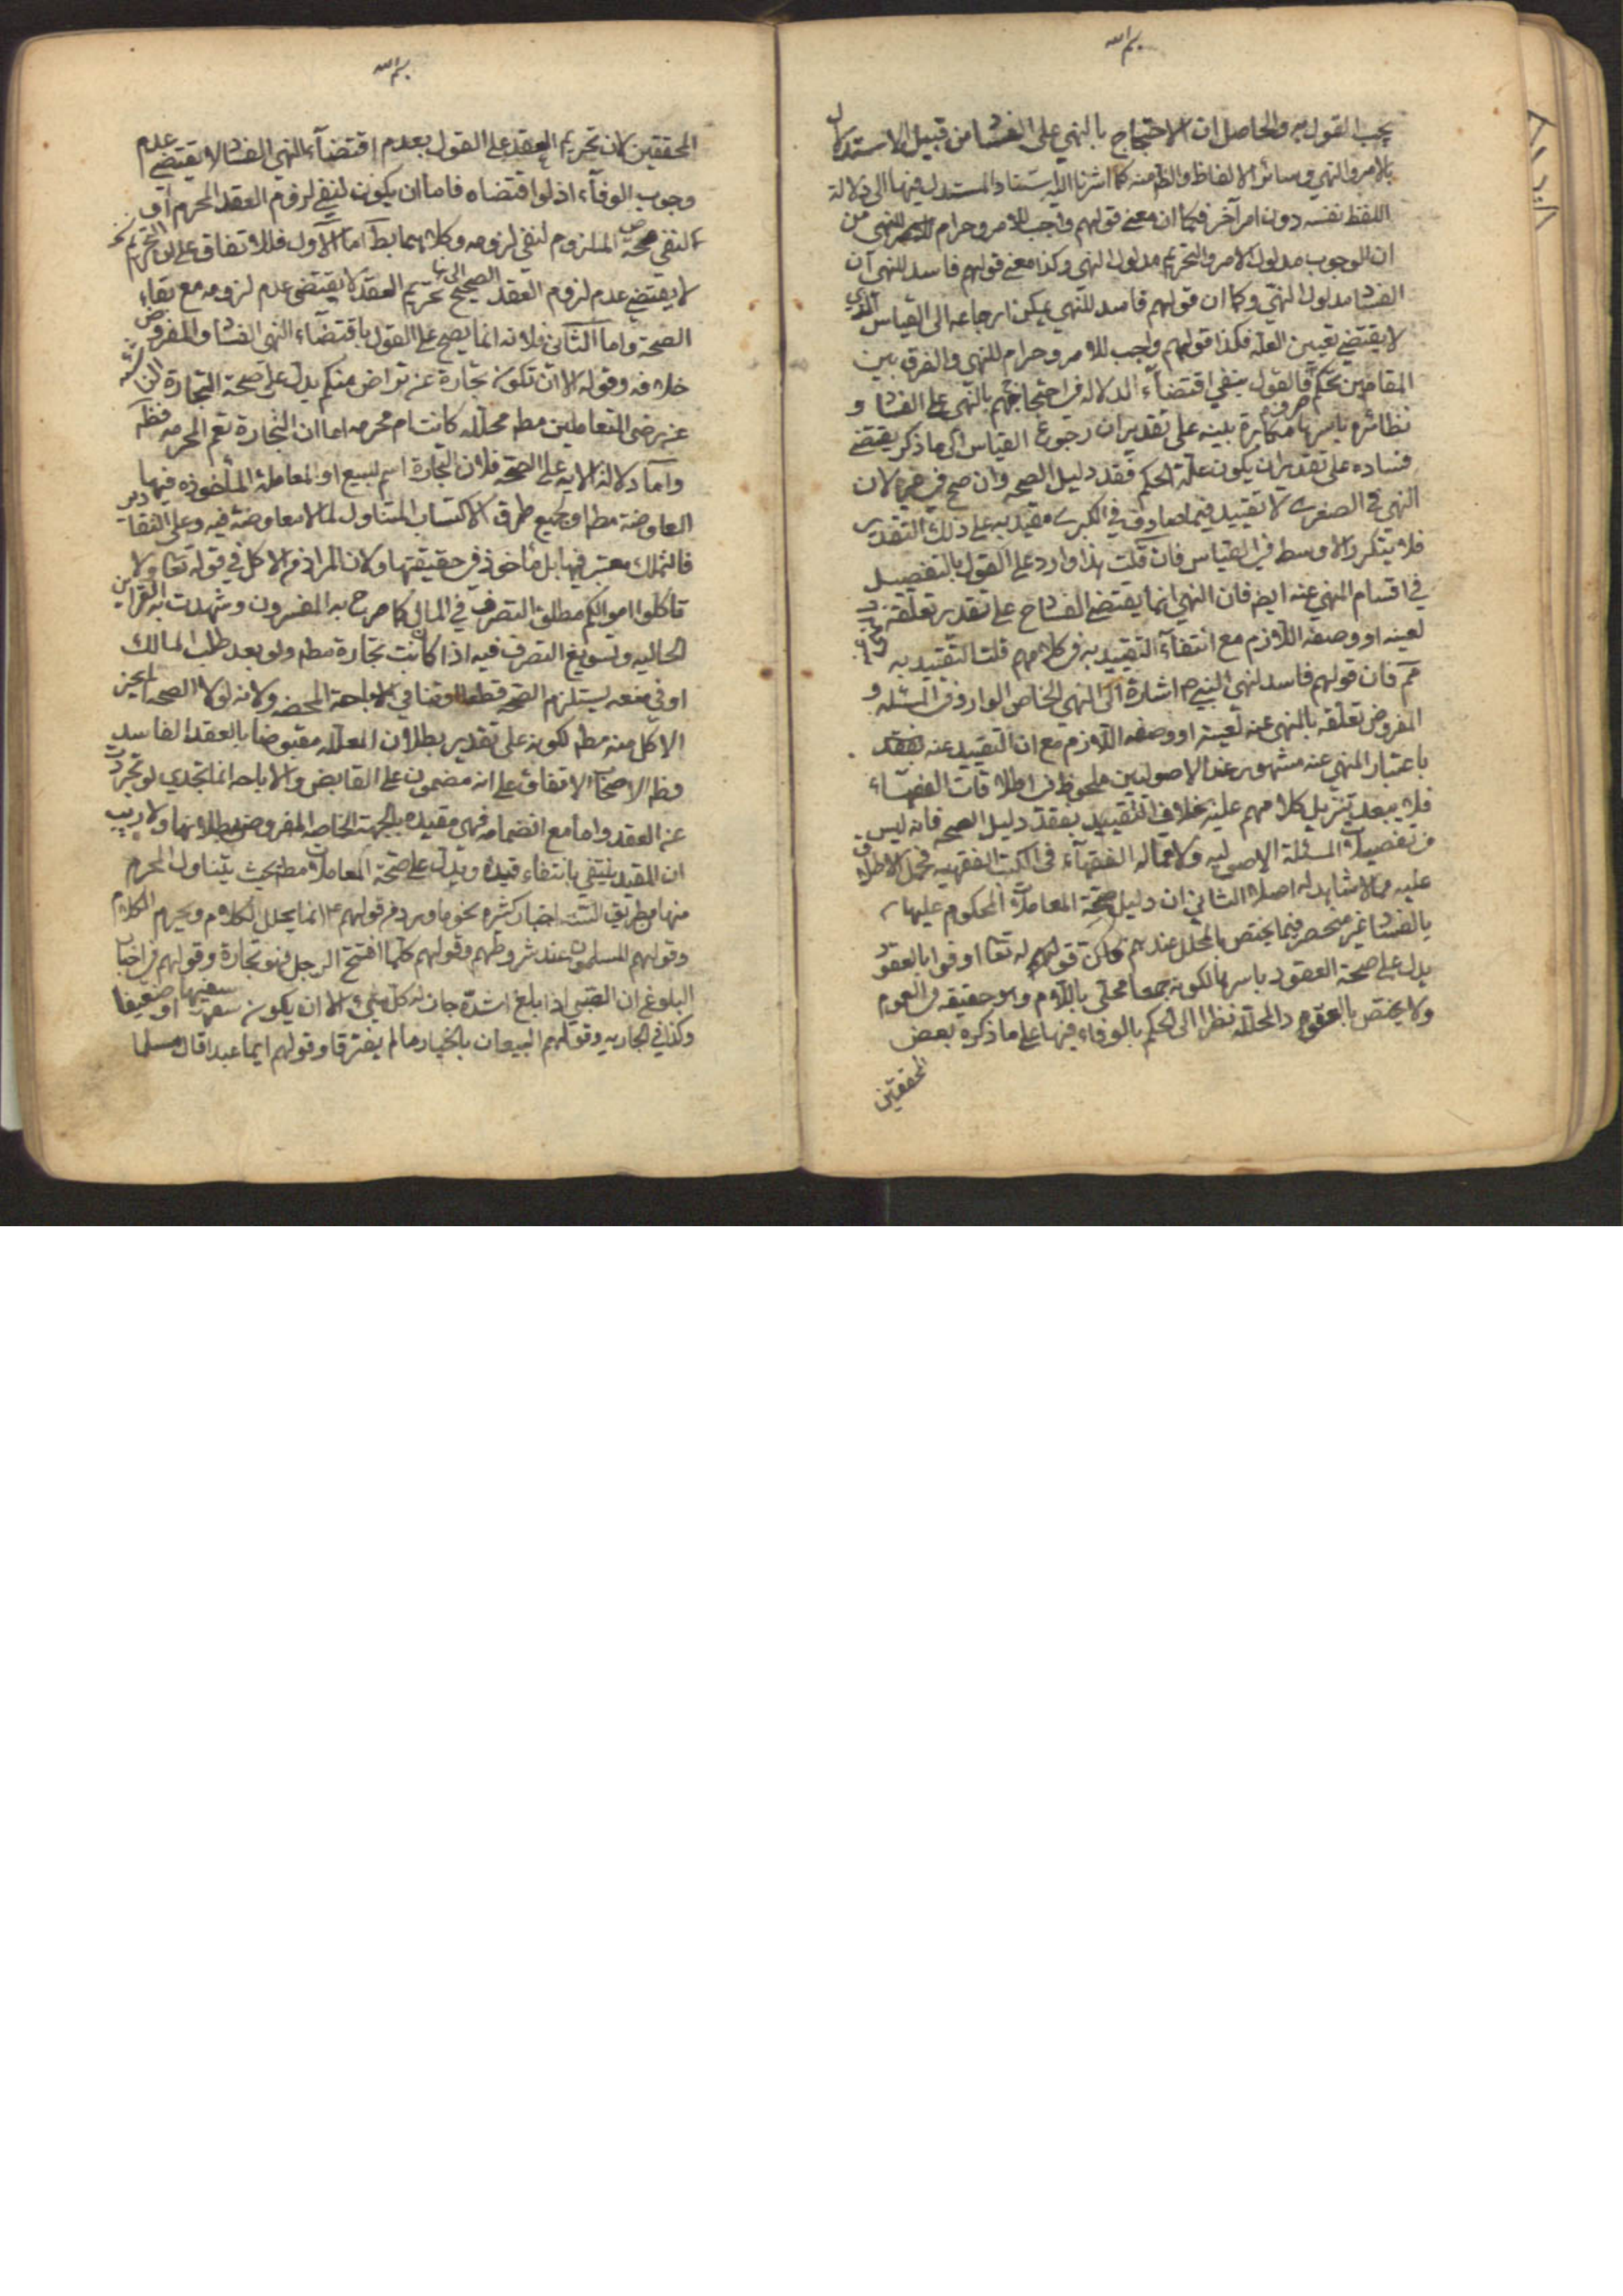 بسم الله
يجب القول به والحاصل ان الاحتجاج بالنهي على الفساد من قبيل الاستدلال
بالامر والنهي وسائر الالفاظ والظ منه كما اشرنا اليه استناد المستدل فيها الى دلالة
اللفظ نفسه دون امر آخر فكما ان معنى قولهم واجب للامر وحرام للنهي من
ان الوجوب مدلول الامر والتحريم مدلول النهي وكذا معنى قولهم فاسد للنهي ان
الفساد مدلول النهي وكما ان قولهم فاسد للنهي يمكن ارجاعه الى القياس الذي
لا يقتضي تعيين العلة فكذا قولهم واجب للامر وحرام للنهي والفرق بين
المقامين تحكم فالقول بنفي اقتضاء الدلالة في احتجاجهم بالنهي على الفساد و
نظائره باسرها مكابرة بينه على تقدير ان رجوع القياس الى ما ذكر يقتضي
فساده على تقدير ان يكون علة الحكم فقد دليل الصحه وان صح في غيره لان
النهي في الصغرى لا تقييد فيه وفي الكبرى مقيد به على ذلك التقدير
فلا يتكرر الاوسط في القياس فان قلت هذا وارد على القول بالتفصيل
في اقسام المنهي عنه ايضا فان النهي انما يقتضي الفساد ح على تقدير تعلقه
لعينه او وصفه اللازم مع انتفاء التقييد به في كلامهم قلت التقييد به
ثم فان قولهم فاسد لنهي النبي ص اشارة الى النهي الخاص الوارد في المسئله و
المفروض تعلقه بالمنهي عنه لعينه او وصفه اللازم مع ان التقييد عنه
باعتبار المنهي عنه مشهور عند الاصوليين ملحوظ في اطلاقات الفقهاء
فلا يبعد تنزيل كلامهم عليه بخلاف التقييد بفقد دليل الصحه فانه ليس
من تفصيلات المسئلة الاصوليه ولا قال به الفقهاء في الكتب الفقهيه فحمل الاطلاق
عليه مما لا شاهد له اصلا الثاني ان دليل صحة المعاملات المحكوم عليها
بالفساد غير منحصر فيما يختص بالمحلل عندهم فان قوله تعا اوفوا بالعقود
يدل على صحة العقود باسرها لكونه جمعا محلى باللام وهو حقيقه في العموم
ولا يختص بالعقود المحللة نظرا الى الحكم بالوفاء فيها على ما ذكره بعض
المحققين
بسم الله
المحققين لان تحريم العقد على القول بعدم اقتضاء النهي الفساد لا يقتضي عدم
وجوب الوفاء اذ لو اقتضاه فاما ان يكون لنفي لزوم العقد المحرم او
لنفي صحة الملزوم لنفي لزومه وكلاهما بط اما الاول فللاتفاق على ان التحريم
لا يقتضي عدم لزوم العقد الصحيح تحريم العقد لا يقتضي عدم لزومه مع بقاء
الصحة واما الثاني فلانه انما يصح على القول باقتضاء النهي الفساد والمفروض
خلافه وقوله الا ان تكون تجارة عن تراض منكم يدل على صحة التجارة الناشئه
عن رضى المتعاملين مطم محلله كانت ام محرمه اما ان التجارة تعم المحرمه فظه
واما دلالة الايه على الصحة فلان التجارة اسم للبيع او المعاملة المأخوذه فيها
المعاوضة مطم او جميع طرق الاكتساب المتناول لما لا معاوضة فيه وعلى التقادير
فالتملك معتبر فيها بل مأخوذ في حقيقتها ولان المراد من الاكل في قوله تعا ولا
تاكلوا اموالكم مطلق التصرف في المال كما صرح به المفسرون وشهدت به القراين
الحاليه وتسويغ التصرف فيه اذا كانت تجارة مطم ولو بعد طلب المالك
او في منعه يستلزم الصحة قطعا وينافي الاباحة المحضه ولانه لولا الصحه لم يجز
الاكل منه مطم لكونه على تقدير بطلان المعامله مقبوضا بالعقد الفاسد
وظ الاصحاب الاتفاق على انه مضمون على القابض والاباحه انما تجدي لو تجردت
عن العقد واما مع انضمامه فهي مقيده بالجهة الخاصه المفروض بطلانها ولا ريب
ان المقيد ينتفي بانتفاء قيده ويدل على صحة المعاملات مطم بحيث يتناول المحرم
منها من طريق السنة اخبار كثيره نحو ما ورد في قولهم ع انما يحلل الكلام ويحرم الكلام
وقولهم المسلمون عند شروطهم وقولهم كلما افتتح الرجل فهو تجارة وقولهم في اخبار
البلوغ ان الصبي اذا بلغ اشده جاز له كل شيئ الا ان يكون سفيها او ضعيفا
وكذا في الجاريه وقولهم البيعان بالخيار ما لم يفترقا وقولهم ايما عبد اقال مسلما